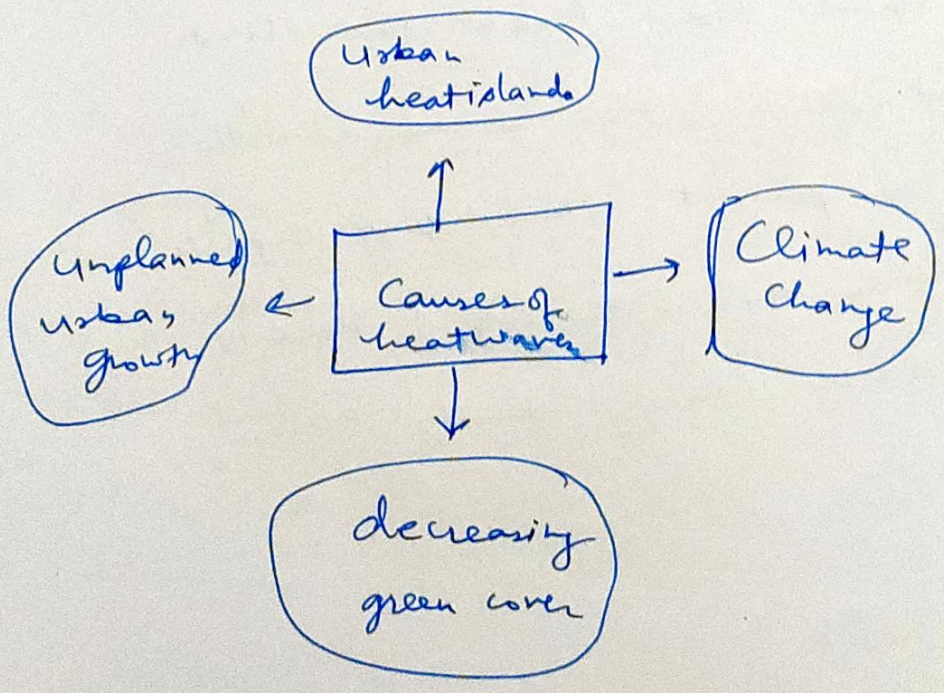 Urban
heatislands
Unplanned
urban
growth
Causes of
heatwaves
Climate
Change
decreasing
green cover